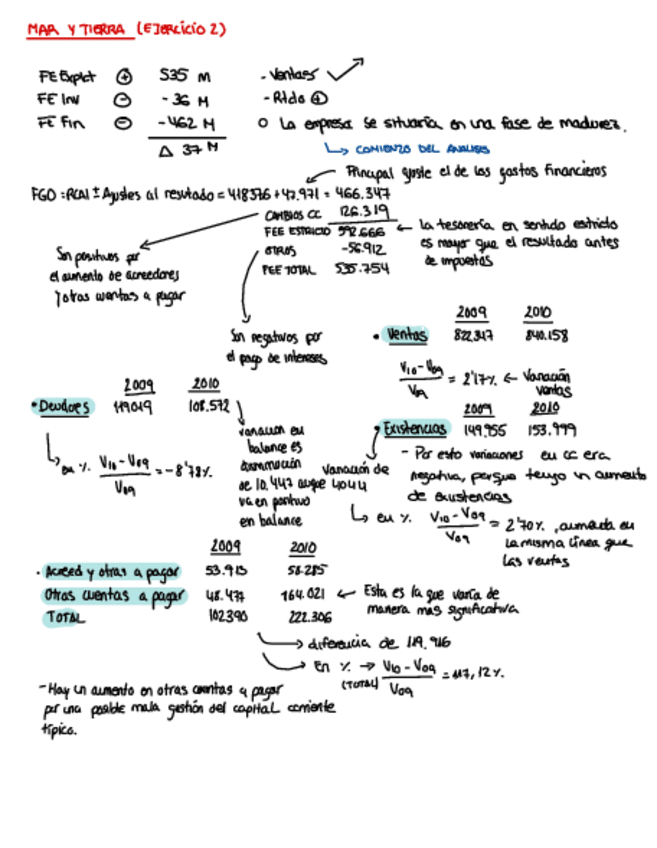 MAR Y TIERRA (EJERCICIO 2)
FE Explot ⊕ 535 M - Ventas
FE Inv ⊖ - 36 M - Rtdo ⊕
FE Fin ⊖ - 462 M o La empresa se situaría en una fase de madurez.
Δ 37 M ↳ COMIENZO DEL ANALISIS
Principal ajuste el de los gastos financieros
FGO = RCAI ± Ajustes al resultado = 418376 + 47.971 = 466.347
CAMBIOS CC 126.319
FEE ESTRICTO 592.666 ← la tesorería en sentido estricto
es mayor que el resultado antes
de impuestos
OTROS -56.912
FEE TOTAL 535.754
Son positivos por
el aumento de acreedores
y otras cuentas a pagar
Son negativos por
el pago de intereses
2009 2010
• Ventas 822.347 840.158
V10 - V09 / V09 = 2'17% ← Variación
ventas
2009 2010
• Deudores 119019 108.572
↳ en % V10 - V09 / V09 = - 8'78%
variación en
balance es
disminución
de 10.447 aunque
va en positivo
en balance
2009 2010
• Existencias 149.955 153.999
Variación de
4044
- Por esto variaciones en cc era
negativa, porque tengo un aumento
de existencias
↳ en % V10 - V09 / V09 = 2'70%, aumenta en
la misma línea que
las ventas
2009 2010
• Acreed y otras a pagar 53.913 58.285
Otras cuentas a pagar 48.477 164.021 ← Esta es la que varía de
manera mas significativa
TOTAL 102390 222.306
→ diferencia de 119.916
→ En % → V10 - V09 / V09 = 117,12%
(TOTAL)
- Hay un aumento en otras cuentas a pagar
por una posible mala gestión del capital corriente
típico.